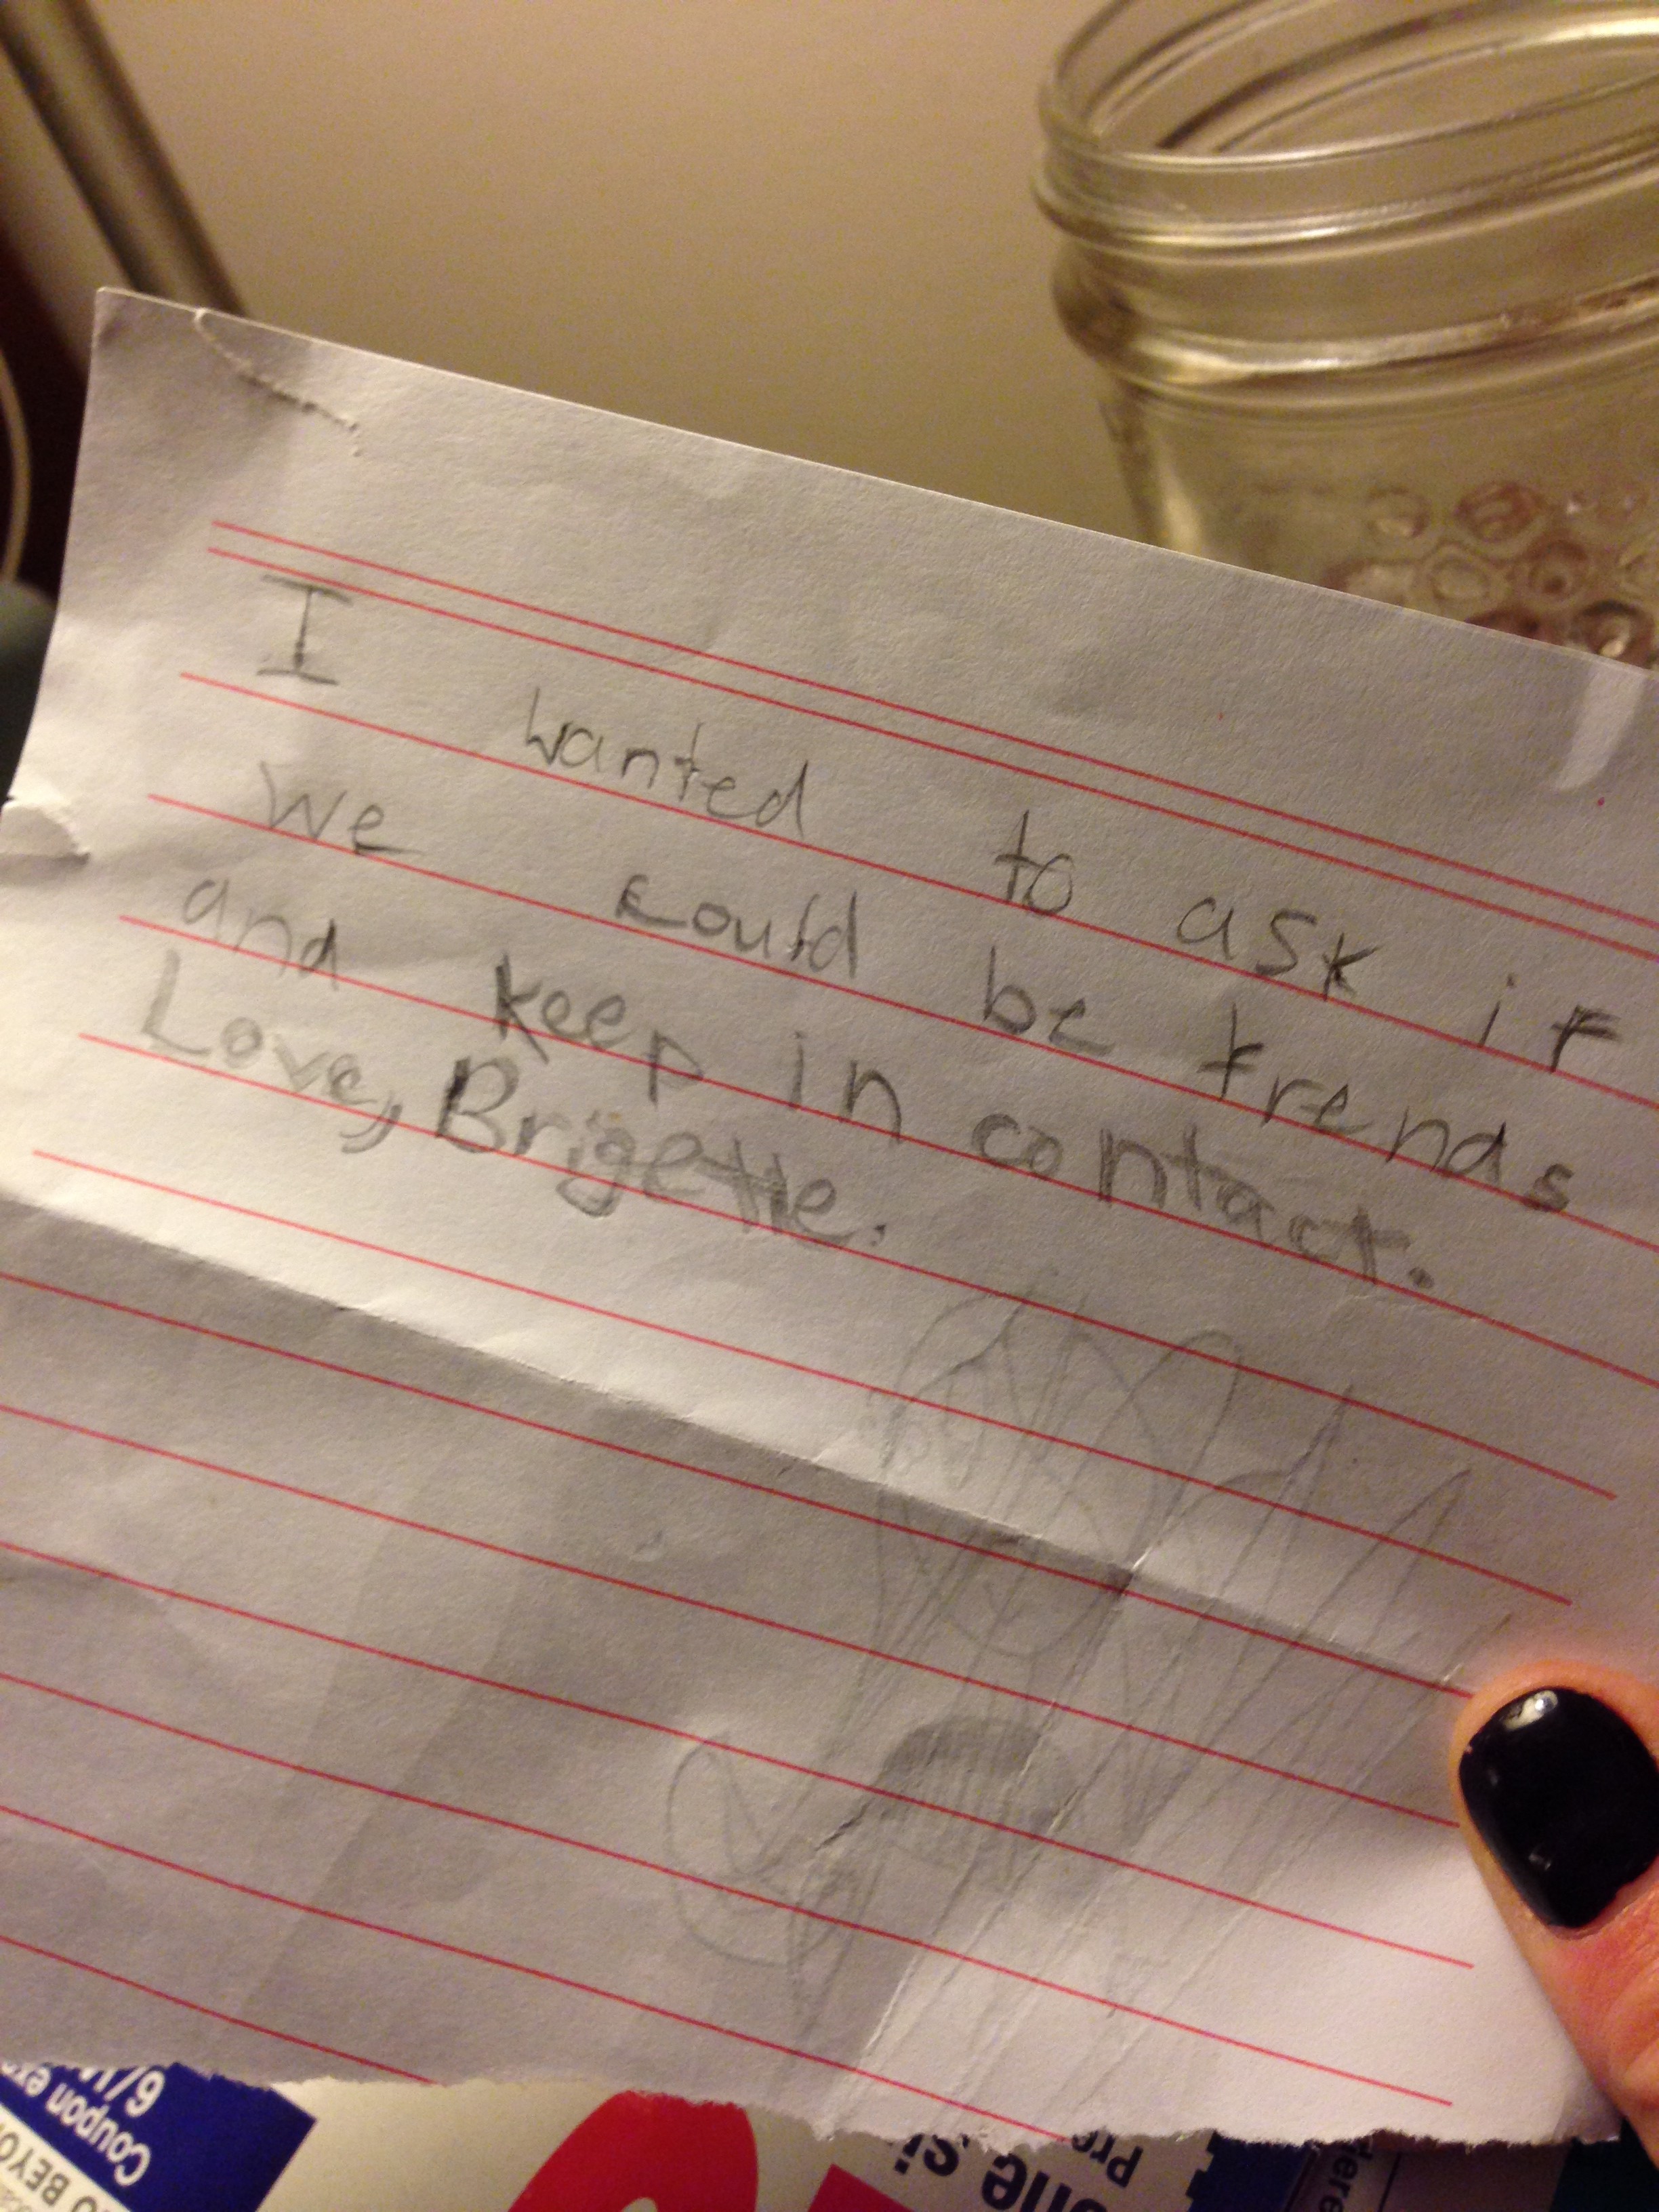 I wanted to ask if
we could be frends
and keep in contact.
Love, Brigette.
Coupon
6/1
BEYO
one si
Pr